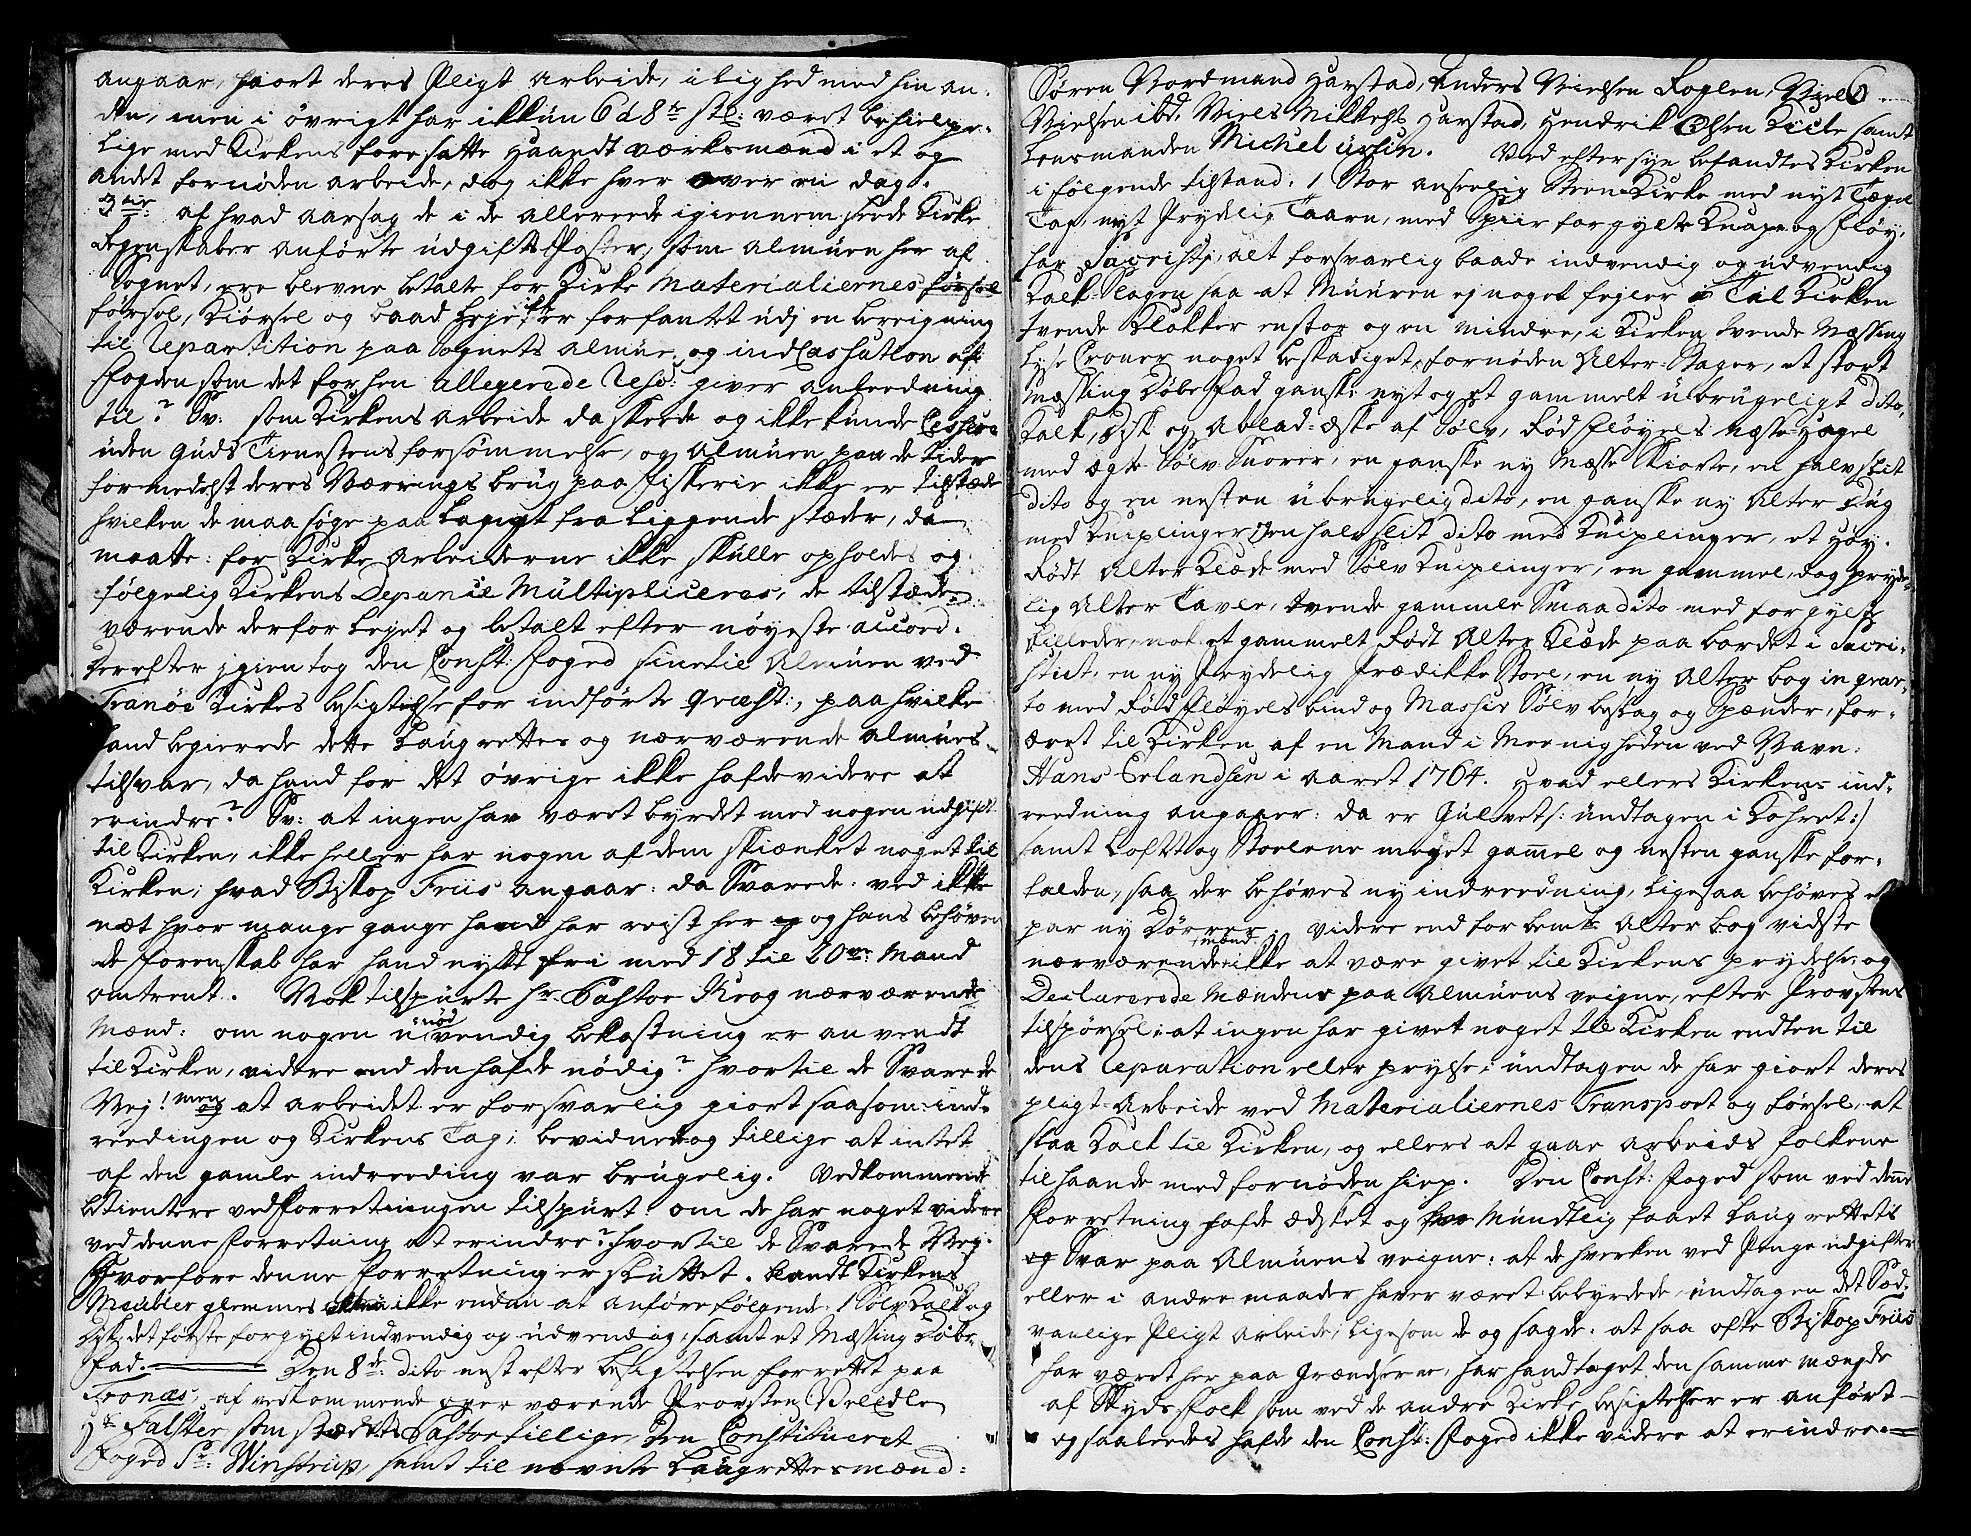 angaar, hiort deres Pligt arbeide, i lighed med hin an,
den, men i øvrigt har ikkun 6 à 8te stk: været behielpe,
lige med Kirkens foresatte Haandtværksmænd i et og
andet fornøden arbeide, dog ikke hver over en dag.
3die: af hvad aarsag de i de allereede igiennem seede Kirke
Regenskaber anførte udgifts Poster, som almuen her af
Sognet, ere blevne betalte for Kirke Materialiernes
førsel, Kiørsel og baad Leje, ikke er forfantet udj en bereigning
til Repartition paa Sognets almue, og indCassation af
fogden som det forhen allegerede Reso: giver anleedning
til? Sv: som Kirkens arbeide da skeede og ikke kunde Cessere
uden Guds Tienestens forsømmelse, og Almuen paa de tider
formedelst deres Nærings brug paa fiskerie ikke er tilstæde
hvilken de maa søge paa langt fra liggende stæder, da
maatte: for Kirke Arbeiderne ikke skulle opholdes og
følgelig Kirkens Depance Multipliceres, de tilstæde
værende derfor Leyet og betalt efter nøyeste accord.
Derefter igientog den Const: Foged sine til Almuen ved
Tranøe Kirkes besigtelse for indførte Qvæst:, paa hvilke
hand begierede dette Laugrettes og nærværende almues
tilsvar, da hand for det øvrige ikke hafde videre at
erindre? Sv: at ingen har været byrdet med nogen udgift
til Kirken, ikke heller har nogen af dem skiænket noget til
Kirken; hvad Biskop Friis angaar: da Svarede: ved ikke
næt hvor mange gange hand har reist her og hans behøven
de forenskab har hand nydt fri med 18 til 20ve Mand
omtrent. Nok tilspurte hr Pastor Krog nærværende
Mænd: om nogen unødvendig bekostning er anvendt
til Kirken, vidtre end den hafde nødig? hvortil de Svarede
Nej! men at arbeidet er forsvarlig giort saasom ind,
reedingen og Kirkens Tag; bevidnet og tillige at intet
af den gamle indreeding var brugelig. Vedkommende
betientere ved forretningen tilspurt: om de har noget videre
ved denne forretning at erindre? hvortil de Svarede Nej.
Hvorfore denne forretning er sluttet. blandt Kirkens
Meubler glemmes ikke endnu at anføre følgende: 1 Sølv Kalk og
Disk, det første forgylt indvendig og udvendig, samt et Messing Døbe,
fad. Den 8de: dito nest efter besigtelsen forrettet paa
Tronæs, af vedkommende overværende Provsten VelEdle
Hr. Falster, som stædets Pastor tillige, Den Constitueret
Foged Sr: Winstrup, samt til nævnte Laugrettesmænd:
Søren Nordmand Harstad, Anders Nielsen Foglen, Niels
6
Nielsen ibd, Niels Mikkels: Harstad, Hendrik Olsen samt
Lensmanden Michel Ursin. Ved eftersyn befandtes Kirken
i følgende tilstand. 1 Stor anseelig Steen Kirke med nyt Tægl
Tag, nyt Prydelig Taarn, med Spiir forgylt Knap og Fløy,
har Sacristj, alt forsvarlig baade indvendig og udvendig
Kalk-slagen saa at Muuren ej noget fejler. Til Kirken
tvende Klokker en stor og en mindre, i Kirken tvende Messing
Lyse Croner noget beskadiget, fornøden Alter-Stager, et stort
Messing Døbe fad ganske nyt og et gammelt ubrugeligt dito,
Kalk, Disk og Ablad-æske af Sølv, Rød Fløyels Messe Hagel
med ægte Sølv Snorer, en ganske ny Messe Skiorte, en halv slit
dito og en nesten ubrugelig dito, en ganske ny Alter Dug
med Kniplinger, en halvslit dito med Kniplinger, et Høy,
Rødt Alter Klæde med Sølv Kniplinger, en gammel, dog pryde,
lig Alter Tavle, tvende gamle Smaa dito med forgylte
billeder, nok et gammelt Rødt Alter Klæde paa bordet i Sacri,
stiet, en ny Prydelig Prædikke Stoel, en ny Alter bog in qvar,
to med Rød Fløyels bind og Massiv Sølv beslag og Spænder, for,
æret til Kirken af en Mand i Meenigheden ved Navn:
Hans Erlandsen i aaret 1764. Hvad ellers Kirkens ind,
reedning angaaer: da er Gulvet /: undtagen i Kohret :/
samt Loftet og Stoelene meget gamel og nesten ganske for,
falden, saa der behøves ny indreedning, ligesaa behøves et
par ny Dørrer. Videre end forbemte Alter bog vidste
nærværende mænd ikke at være givet til Kirkens prydelse, og
Declarerede Mændene paa Almuens veigne, efter Provstens
tilspørsel: at ingen har givet noget til Kirken endten til
dens Reparation eller prydse, undtagen de har giort deres
pligt-Arbeide ved Materialiernes Transport og førsel, at
slaa Kalk til Kirken, og ellers at gaae Arbeids folkene
til haande med fornøden hielp. Den Const: Foged som ved denne
forretning hafde ædsket og Mundtlig faaet Laugrettets
og Svar paa Almuens veigne: at de hverken ved Penge udgifter
eller i andre maader haver været bebyrdede, undtagen det Sæd,
vanlige Pligt arbeide; ligesom de og sagde: at saa ofte Biskop Friis
har været her paa Grændserne, har hand taget den samme mængde
af Skyds-folk som ved de andre Kirke besigtelser er anført
og saaledes hafde den Const: Foged ikke videre at erindre.